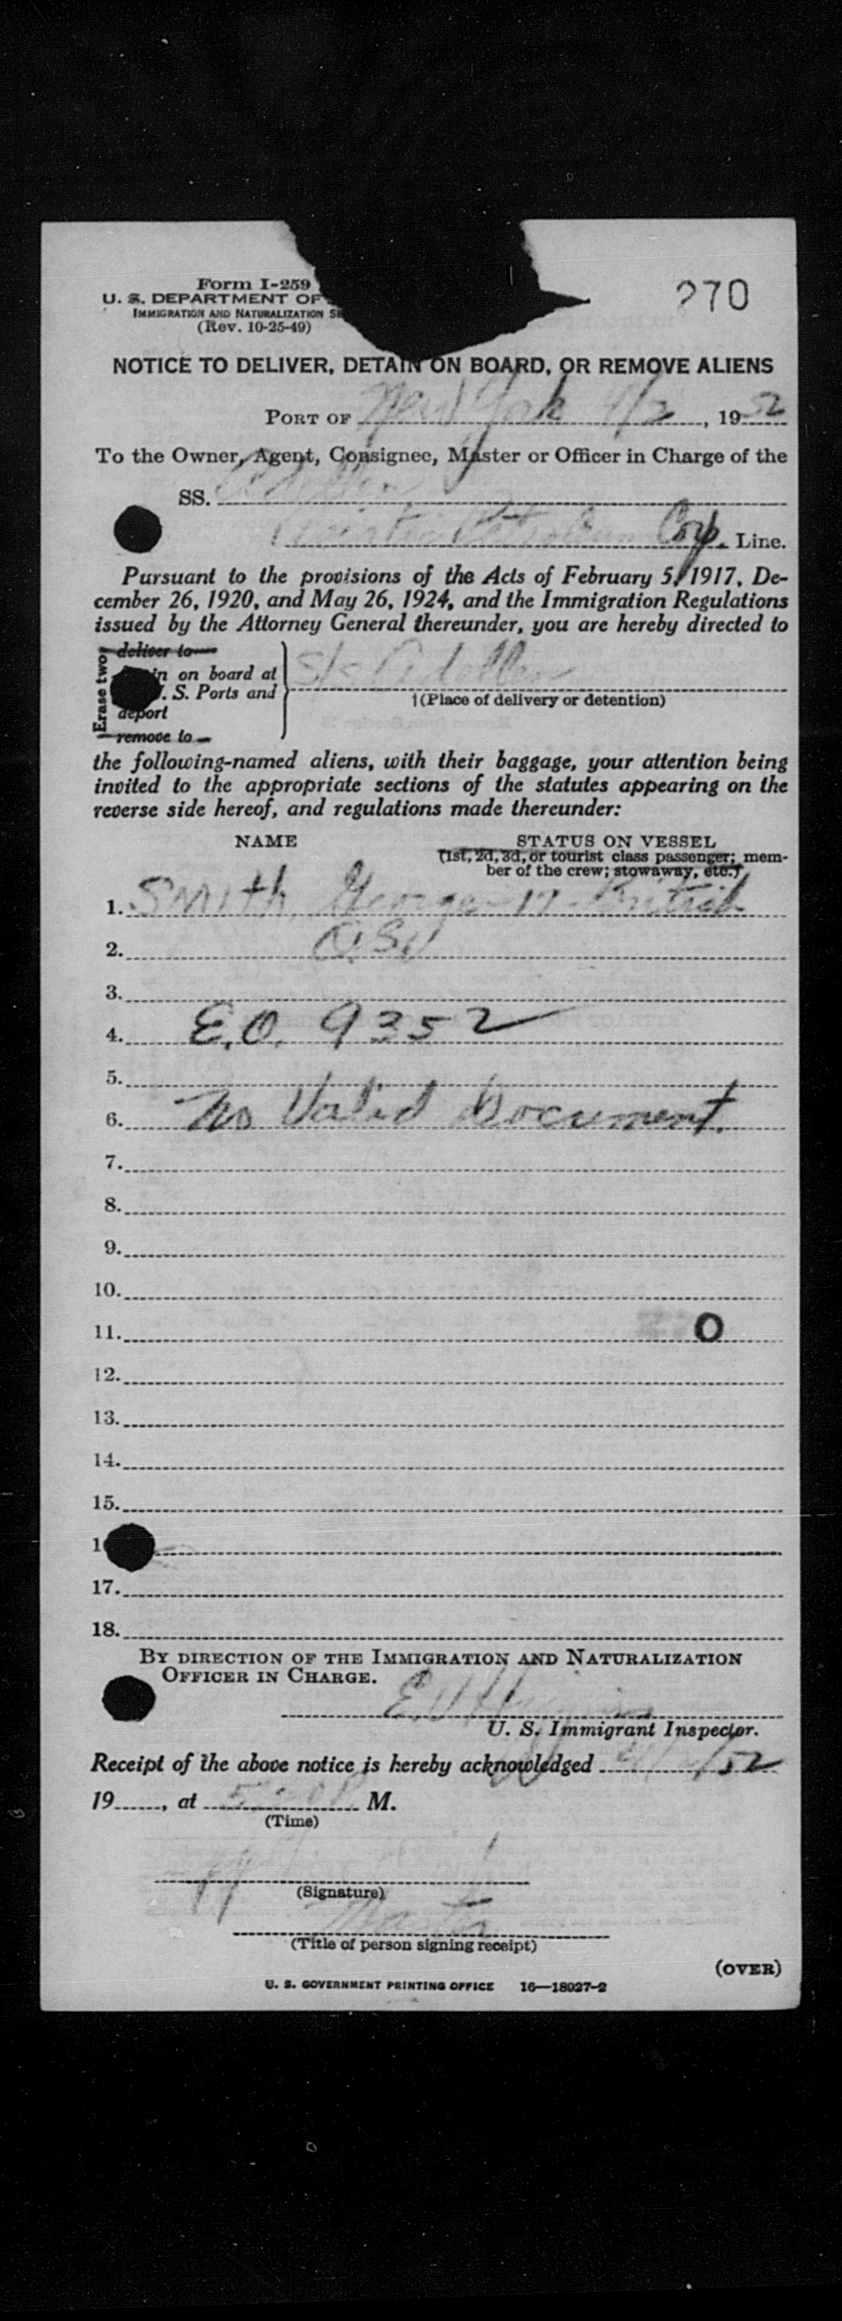 Form I-259
270
U. S. DEPARTMENT OF
IMMIGRATION AND NATURALIZATION
(Rev. 10-25-49)
NOTICE TO DELIVER, DETAIN ON BOARD, OR REMOVE ALIENS
PORT OF New York 4/2, 1952
To the Owner, Agent, Consignee, Master or Officer in Charge of the
SS.
Petroleum Corp. Line.
Pursuant to the provisions of the Acts of February 5, 1917, De-
cember 26, 1920, and May 26, 1924, and the Immigration Regulations
issued by the Attorney General thereunder, you are hereby directed to
Erase two
deliver to
on board at S/S
S. Ports and
(Place of delivery or detention)
deport
remove to
the following-named aliens, with their baggage, your attention being
invited to the appropriate sections of the statutes appearing on the
reverse side hereof, and regulations made thereunder:
NAME STATUS ON VESSEL
(1st, 2d, 3d, or tourist class passenger; mem-
ber of the crew; stowaway, etc.)
1. Smith, George - 17 - British
2.
3.
4. E.O. 9352
5.
6. No Valid Document.
7.
8.
9.
10.
11. 0
12.
13.
14.
15.
1
17.
18.
BY DIRECTION OF THE IMMIGRATION AND NATURALIZATION
OFFICER IN CHARGE.
U. S. Immigrant Inspector.
Receipt of the above notice is hereby acknowledged /52
19, at M.
(Time)
(Signature)
Master
(Title of person signing receipt)
(OVER)
U. S. GOVERNMENT PRINTING OFFICE 16—18027-2